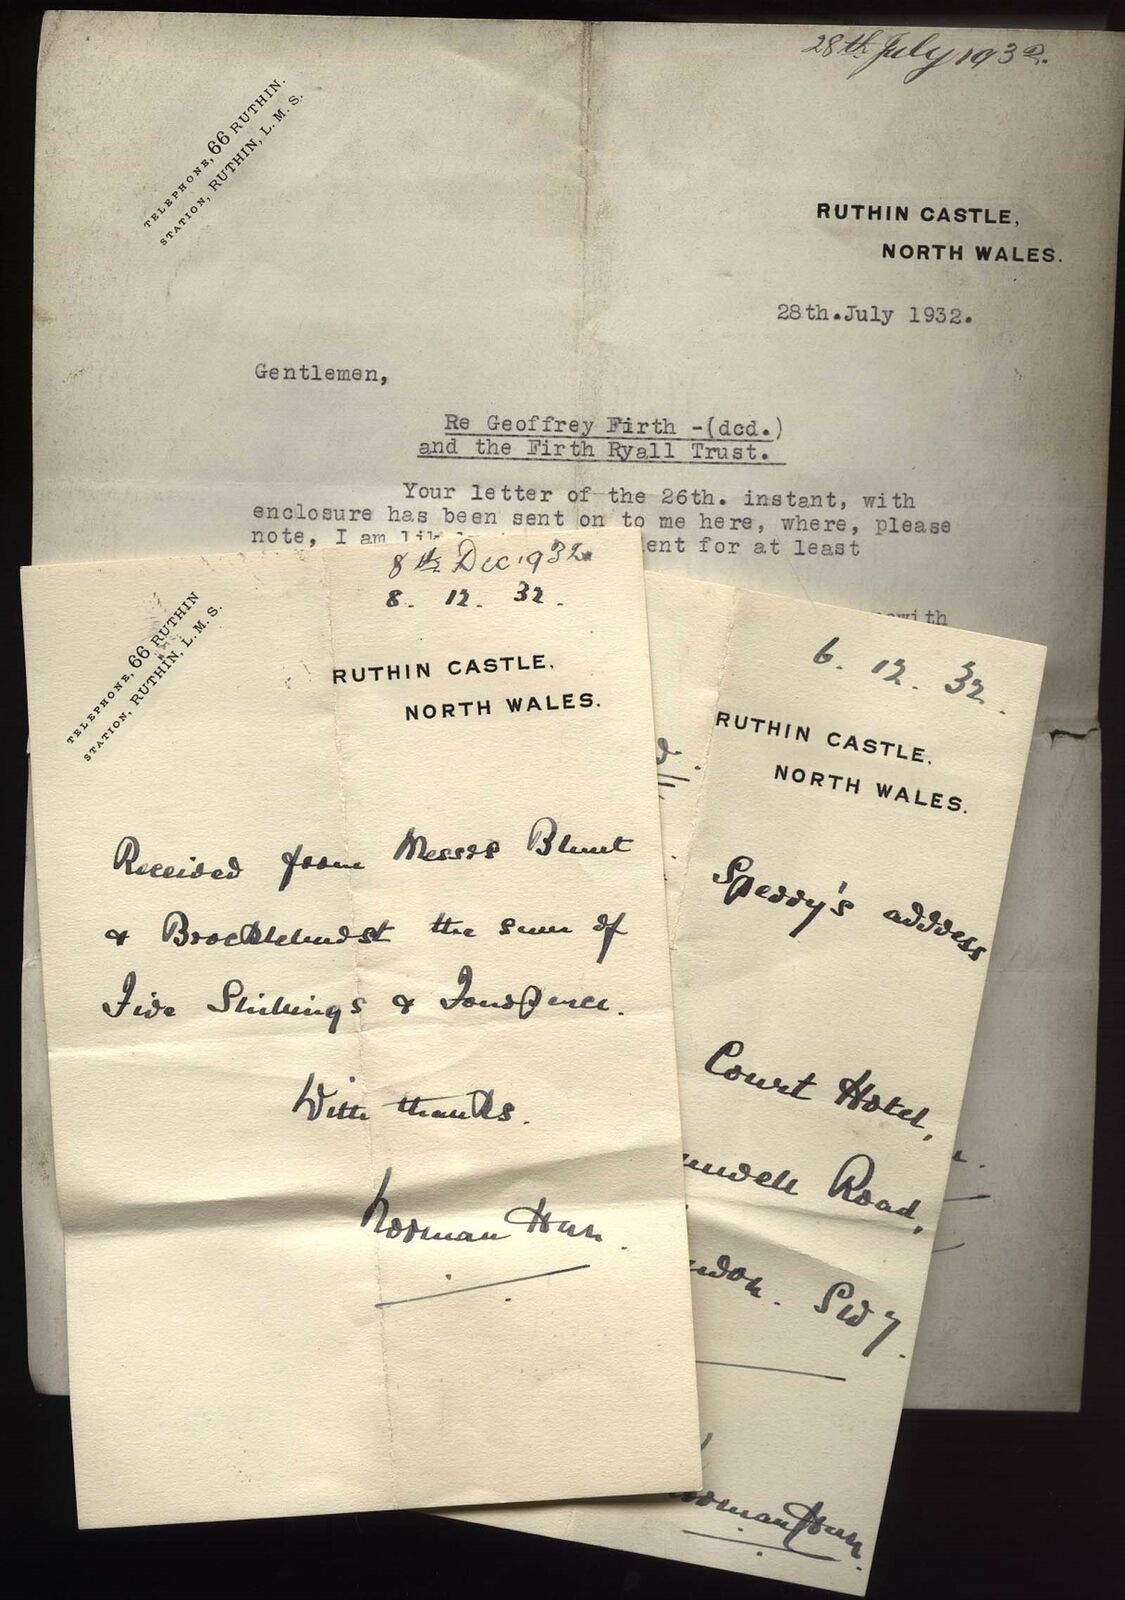 28th July 1932.
TELEPHONE, 66 RUTHIN.
STATION, RUTHIN, L. M. S.
RUTHIN CASTLE,
NORTH WALES.
28th.July 1932.
Gentlemen,
Re Geoffrey Firth -(dcd.)
and the Firth Ryall Trust.
Your letter of the 26th. instant, with
enclosure has been sent on to me here, where, please
note, I am ent for at least
with
8th Dec. 1932.
8. 12. 32.
TELEPHONE, 66 RUTHIN
STATION, RUTHIN, L. M. S.
RUTHIN CASTLE,
NORTH WALES.
Received from Messrs Blunt
& Brocklehurst the sum of
Five Shillings & Fourpence.
With thanks.
Norman
6. 12. 32.
RUTHIN CASTLE,
NORTH WALES.
address
Court Hotel,
Road,
ndon. SW7.